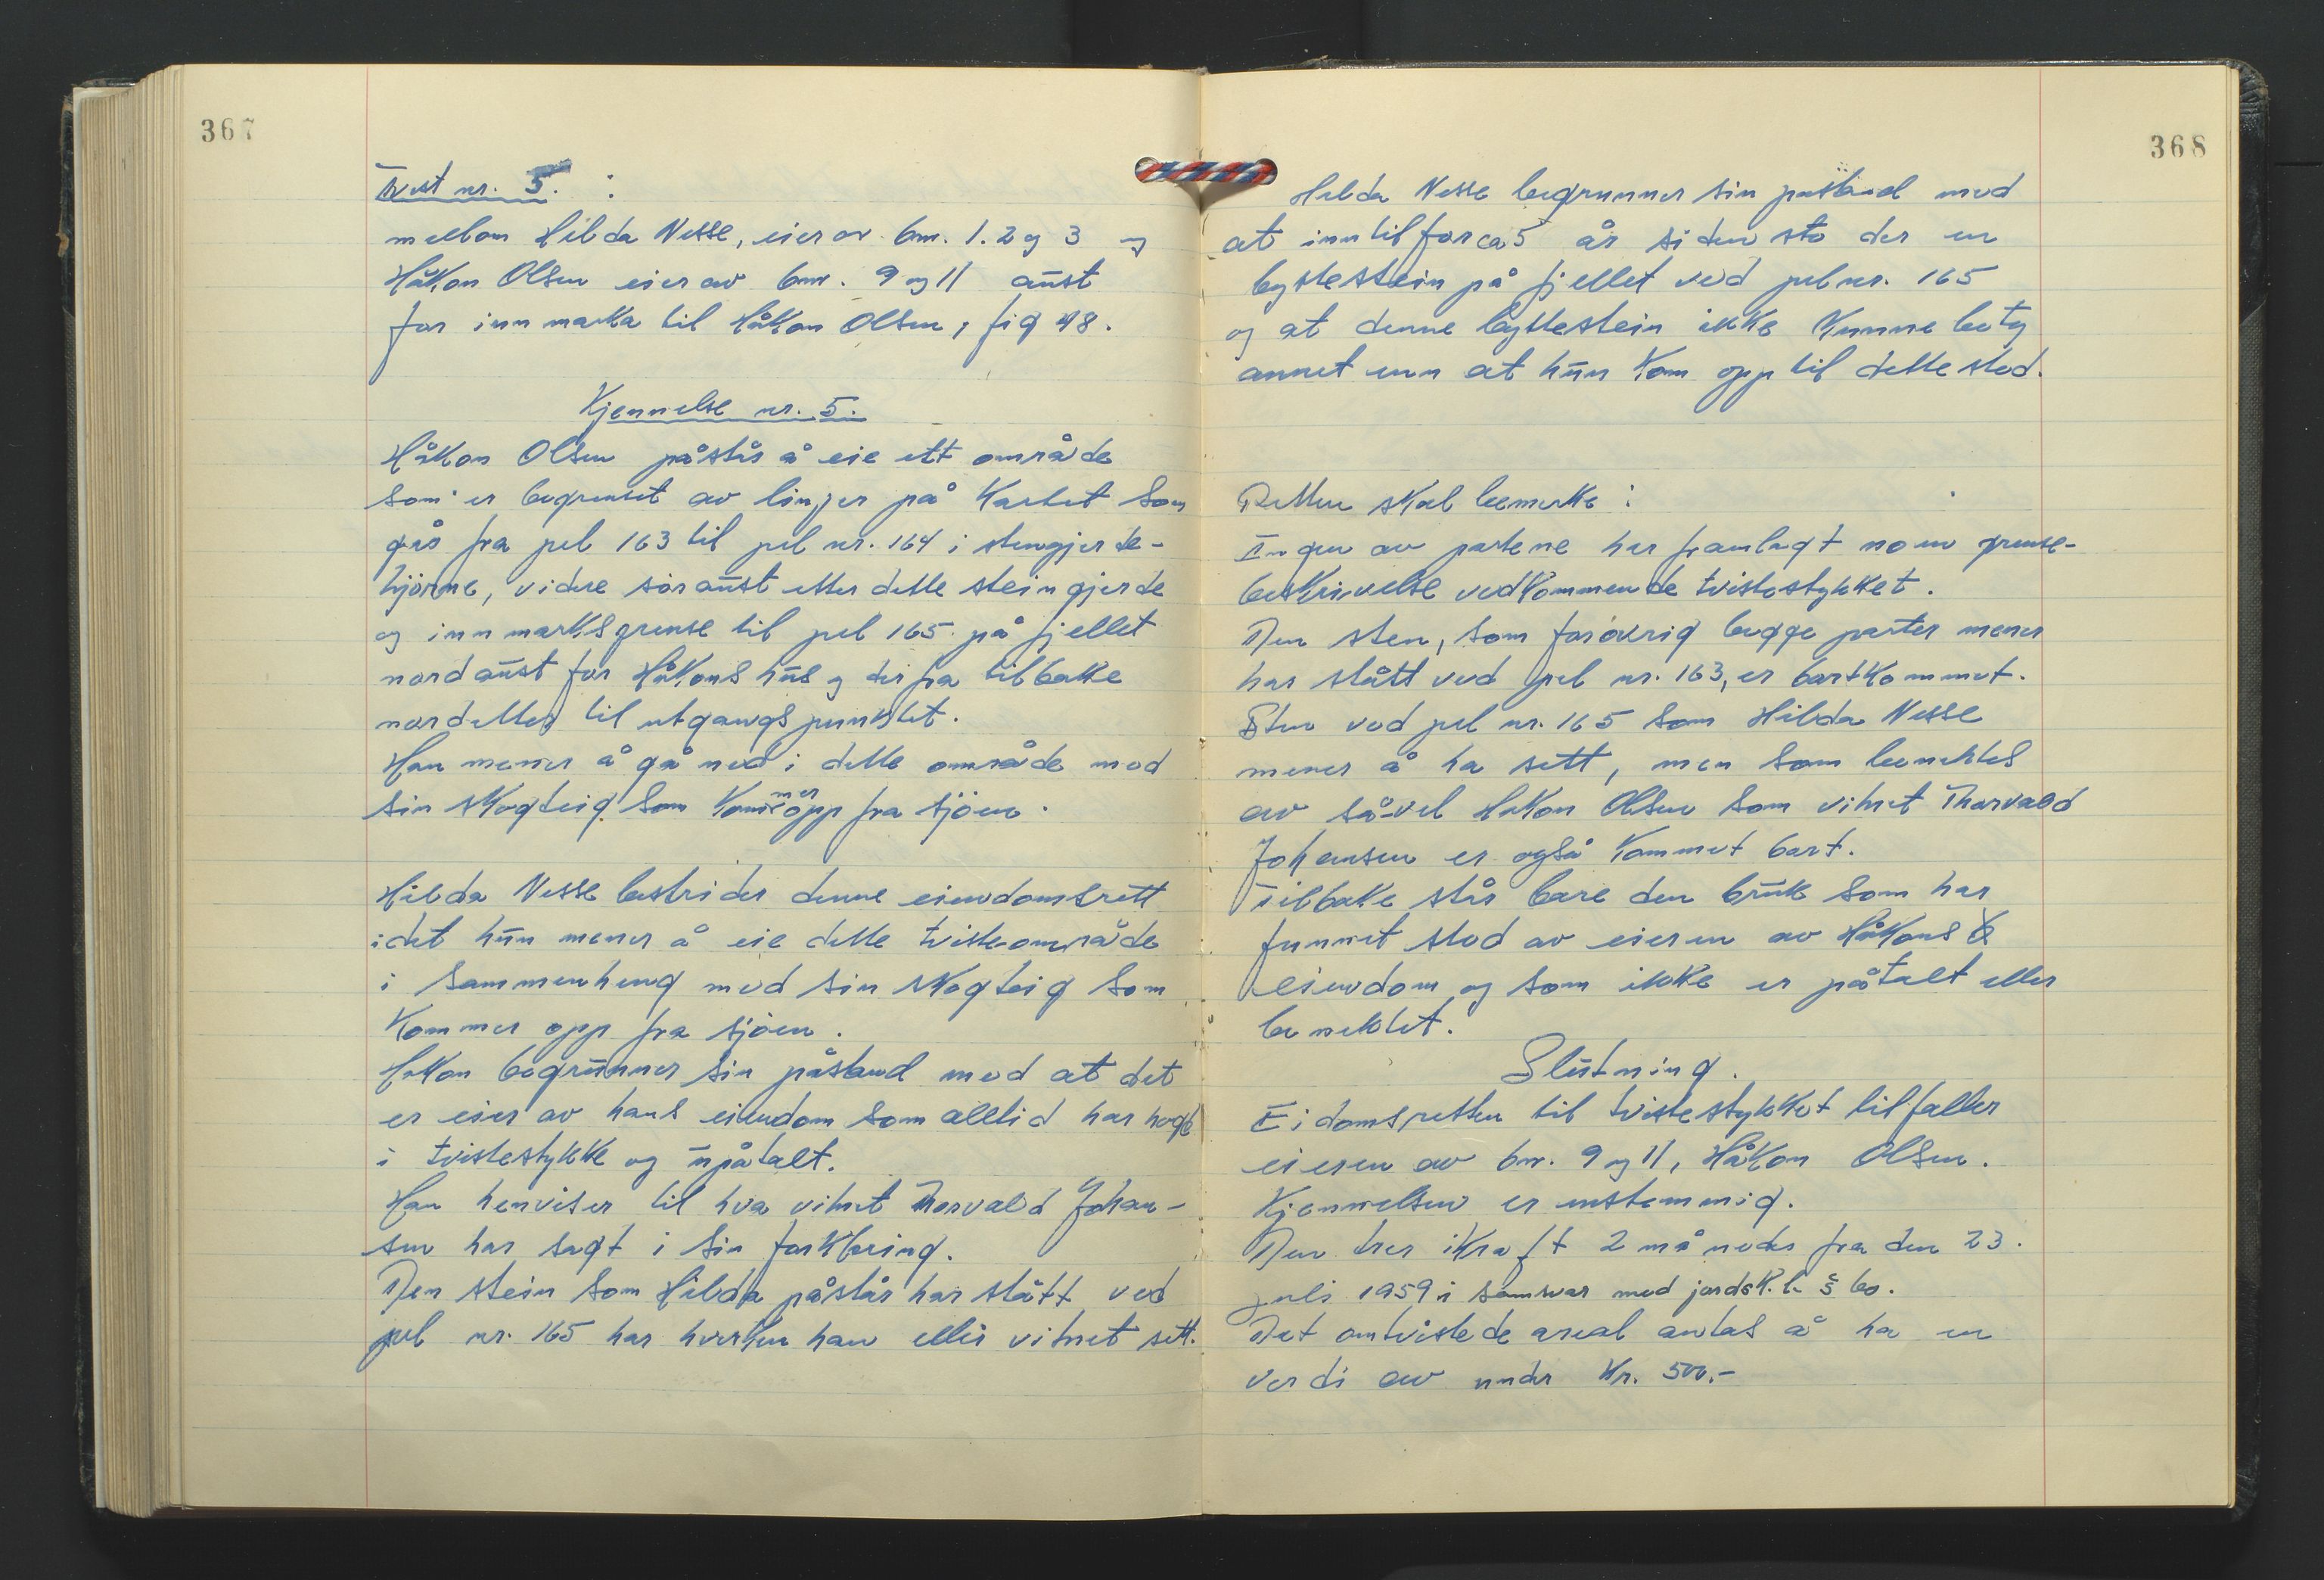 367
Tvist nr. 5. :
mellom Hilda Nesse, eier av bnr. 1. 2 og 3 og
Håkon Olsen eier av bnr. 9 og 11 aust
for innmarka til Håkon Olsen, fig 48.
Kjennelse nr. 5.
Håkon Olsen påstår å eie ett område
som er begrenset av linjer på kartet som
går fra pel 163 til pel nr. 164 i stengjerde-
hjörne, videre söraust etter dette steingjerde
og innmarksgrense til pel 165 på fjellet
nordaust for Håkons hus og derfra tilbake
nordetter til utgangspunktet.
Han mener å gå ned i dette område med
sin skogteig som kommer opp fra sjöen.
Hilda Nesse bestrider denne eiendomsrett
idet hun mener å eie dette tvisteområde
i sammenheng med sin skogteig som
kommer opp fra sjöen.
Håkon begrunner sin påstand med at det
er eier av hans eiendom som alltid har hogt
i tvistestykke og upåtalt.
Han henviser til hva vitnet Thorvald Johan-
sen har sagt i sin forklaring.
Den stein som Hilda påstår har stått ved
pel nr. 165 har hverken han eller vitnet sett.
368
Hilda Nesse begrunner sin påstand med
at inntil for ca 5 år siden sto der en
byttestein på fjellet ved pel nr. 165
og at denne byttestein ikke kunne bety
annet enn at hun kom opp til dette sted.
Retten skal bemerke :
Ingen av partene har framlagt noen grense-
beskrivelse vedkommende tvistestykket.
Den sten, som forövrig begge parter mener
har stått ved pel nr. 163, er bortkommet.
Sten ved pel nr. 165 som Hilda Nesse
mener å ha sett, men som benektes
av så-vel Håkon Olsen som vitnet Thorvald
Johansen er også kommet bort.
Tilbake står bare den bruk som har
funnet sted av eieren av Håkons
eiendom og som ikke er påtalt eller
benektet.
Slutning.
Eidomsretten til tvistestykket tilfaller
eieren av bnr. 9 og 11, Håkon Olsen.
Kjennelsen er enstemmig.
Den trer ikraft 2 måneder fra den 23.
juli 1959 i samsvar med jordsk.l. § 60.
Det omtvistede areal antas å ha en
verdi av under kr. 500.-